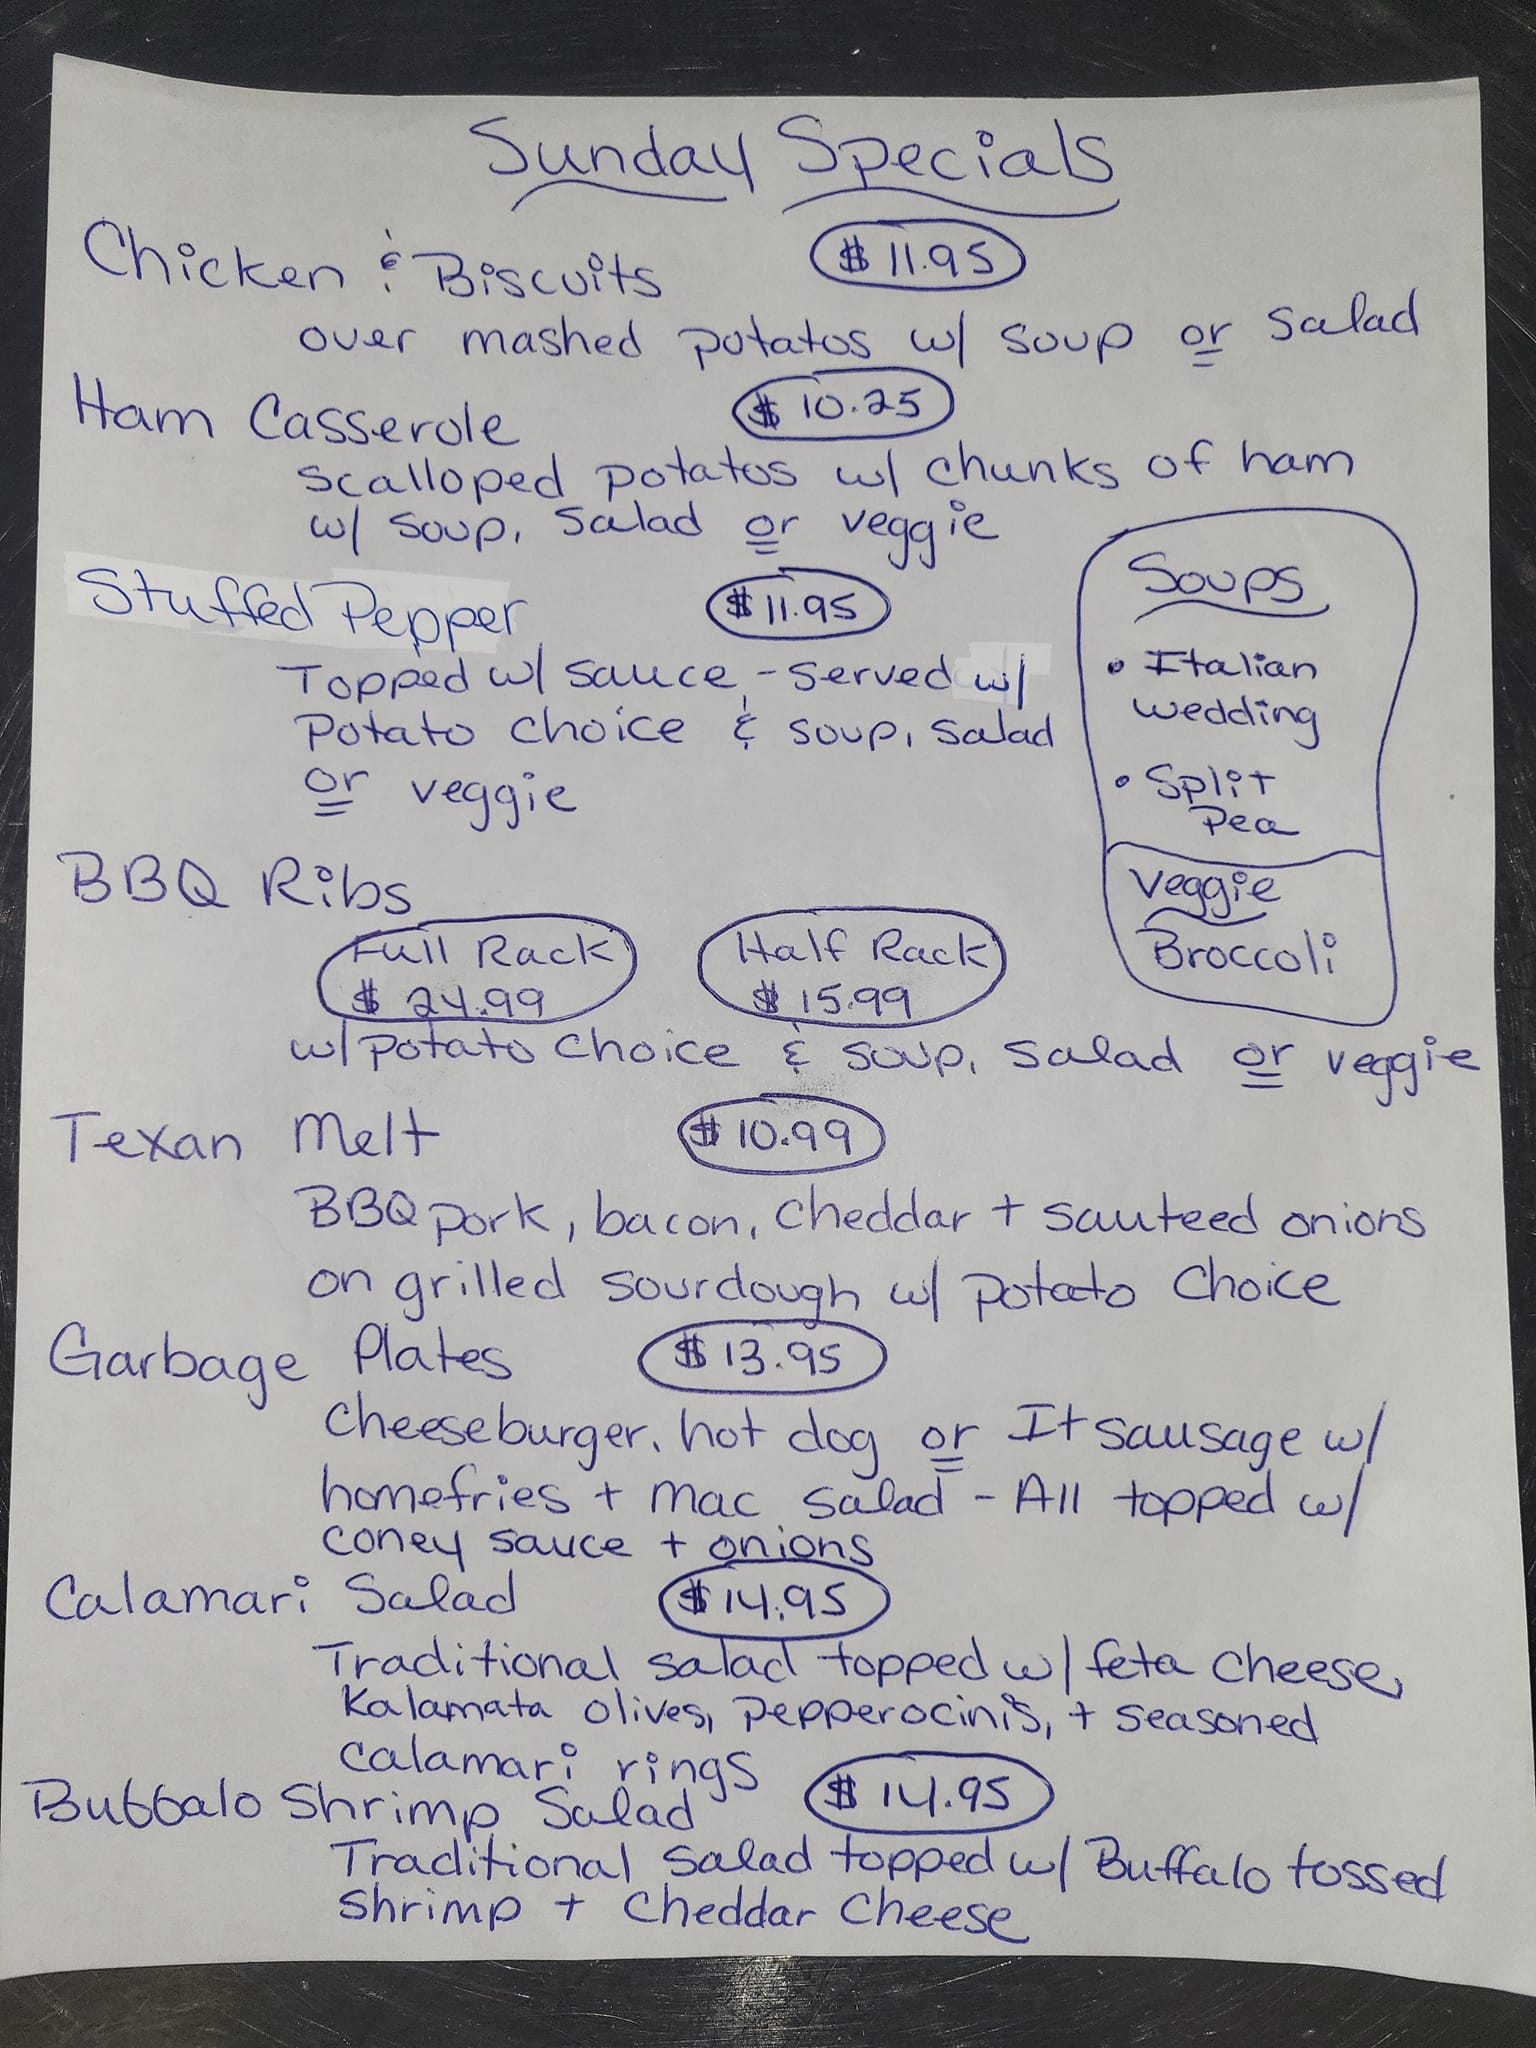 Sunday Specials
Chicken & Biscuits $11.95
over mashed potatos w/ soup or salad
Ham Casserole $10.25
scalloped potatos w/ chunks of ham
w/ soup, salad or veggie
Stuffed Pepper $11.95
Topped w/ sauce - served w/
Potato choice & soup, salad
or veggie
Soups
• Italian
wedding
• Split
Pea
Veggie
Broccoli
BBQ Ribs
Full Rack Half Rack
$24.99 $15.99
w/ potato choice & soup, salad or veggie
Texan Melt $10.99
BBQ pork, bacon, cheddar + sauteed onions
on grilled sourdough w/ potato choice
Garbage Plates $13.95
cheeseburger, hot dog or It sausage w/
homefries + mac salad - All topped w/
coney sauce + onions
Calamari Salad $14.95
Traditional salad topped w/ feta cheese,
Kalamata olives, pepperocinis, + seasoned
calamari rings
Buffalo Shrimp Salad $14.95
Traditional salad topped w/ Buffalo tossed
shrimp + cheddar cheese